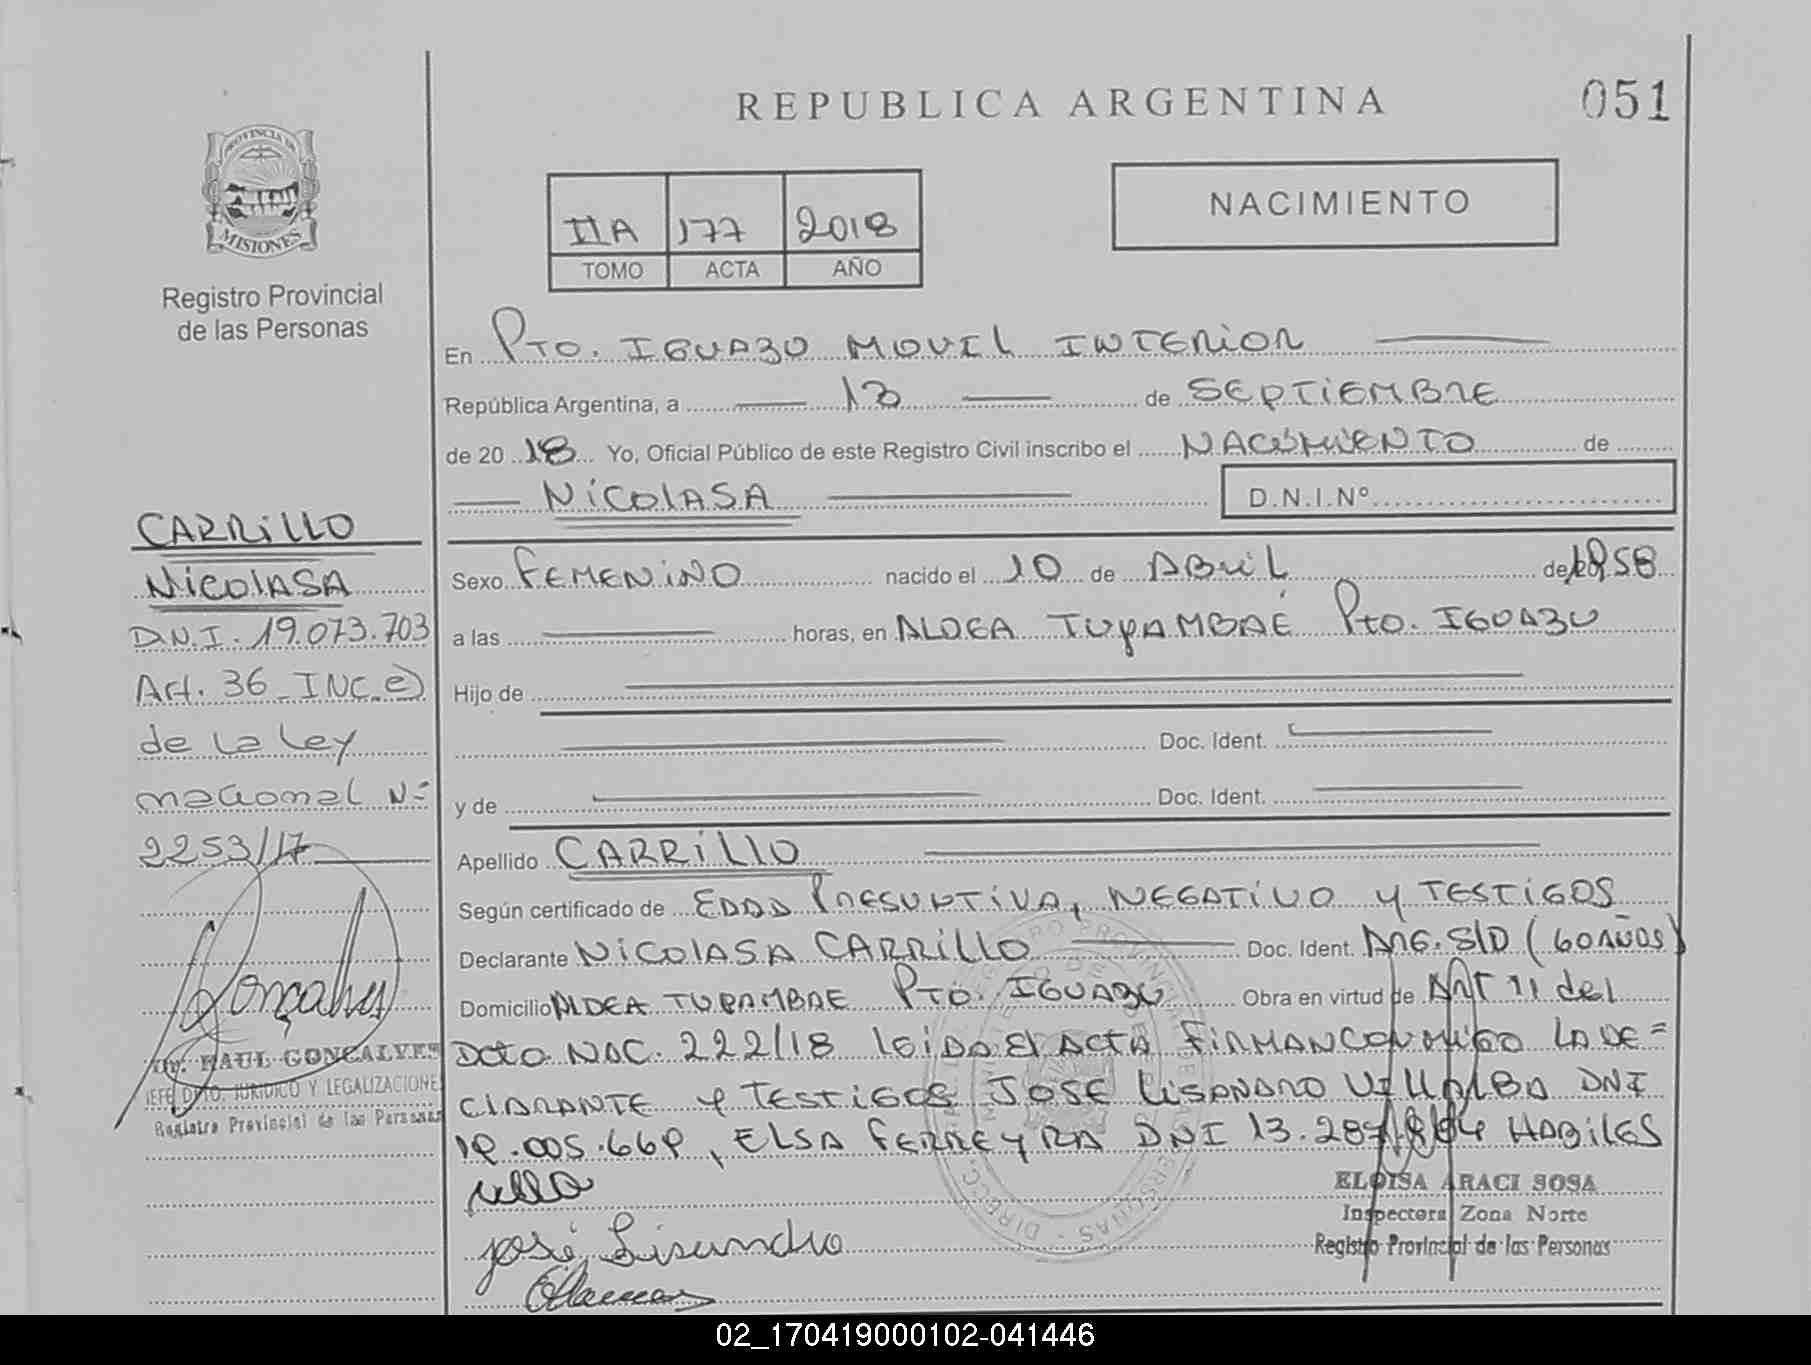 REPUBLICA ARGENTINA
051
PROVINCIA DE
MISIONES
Registro Provincial
de las Personas
NACIMIENTO
IIA 177 2018
TOMO ACTA AÑO
En PTO. IGUAZU MOVIL INTERIOR
República Argentina, a 13 de SEPTIEMBRE
de 20 18 Yo, Oficial Público de este Registro Civil inscribo el NACIMIENTO de
NICOLASA D.N.I.Nº
Sexo FEMENINO nacido el 10 de ABRIL de 1958
a las horas, en ALDEA TUPAMBAÉ PTO. IGUAZU
Hijo de
Doc. Ident.
y de Doc. Ident.
Apellido CARRILLO
Según certificado de EDAD PRESUNTIVA, NEGATIVO Y TESTIGOS
Declarante NICOLASA CARRILLO Doc. Ident. ARG. S/D (60 AÑOS)
Domicilio ALDEA TUPAMBAE PTO. IGUAZU Obra en virtud de ART 11 del
DCTO NAC. 222/18 LEIDA EL ACTA FIRMAN CONMIGO LA DE=
CLARANTE Y TESTIGOS JOSE LISANDRO VILLALBA DNI
19.005.669, ELSA FERREYRA DNI 13.287.894 HABILES
José Lisandro
ELOISA ARACI SOSA
Inspectora Zona Norte
Registro Provincial de las Personas
CARRILLO
NICOLASA
D.N.I. 19.073.703
Art. 36 INC e)
de la Ley
nacional Nº
2253/17
Dr. RAUL GONCALVES
JEFE DPTO. JURIDICO Y LEGALIZACIONES
Registro Provincial de las Personas
02_170419000102-041446